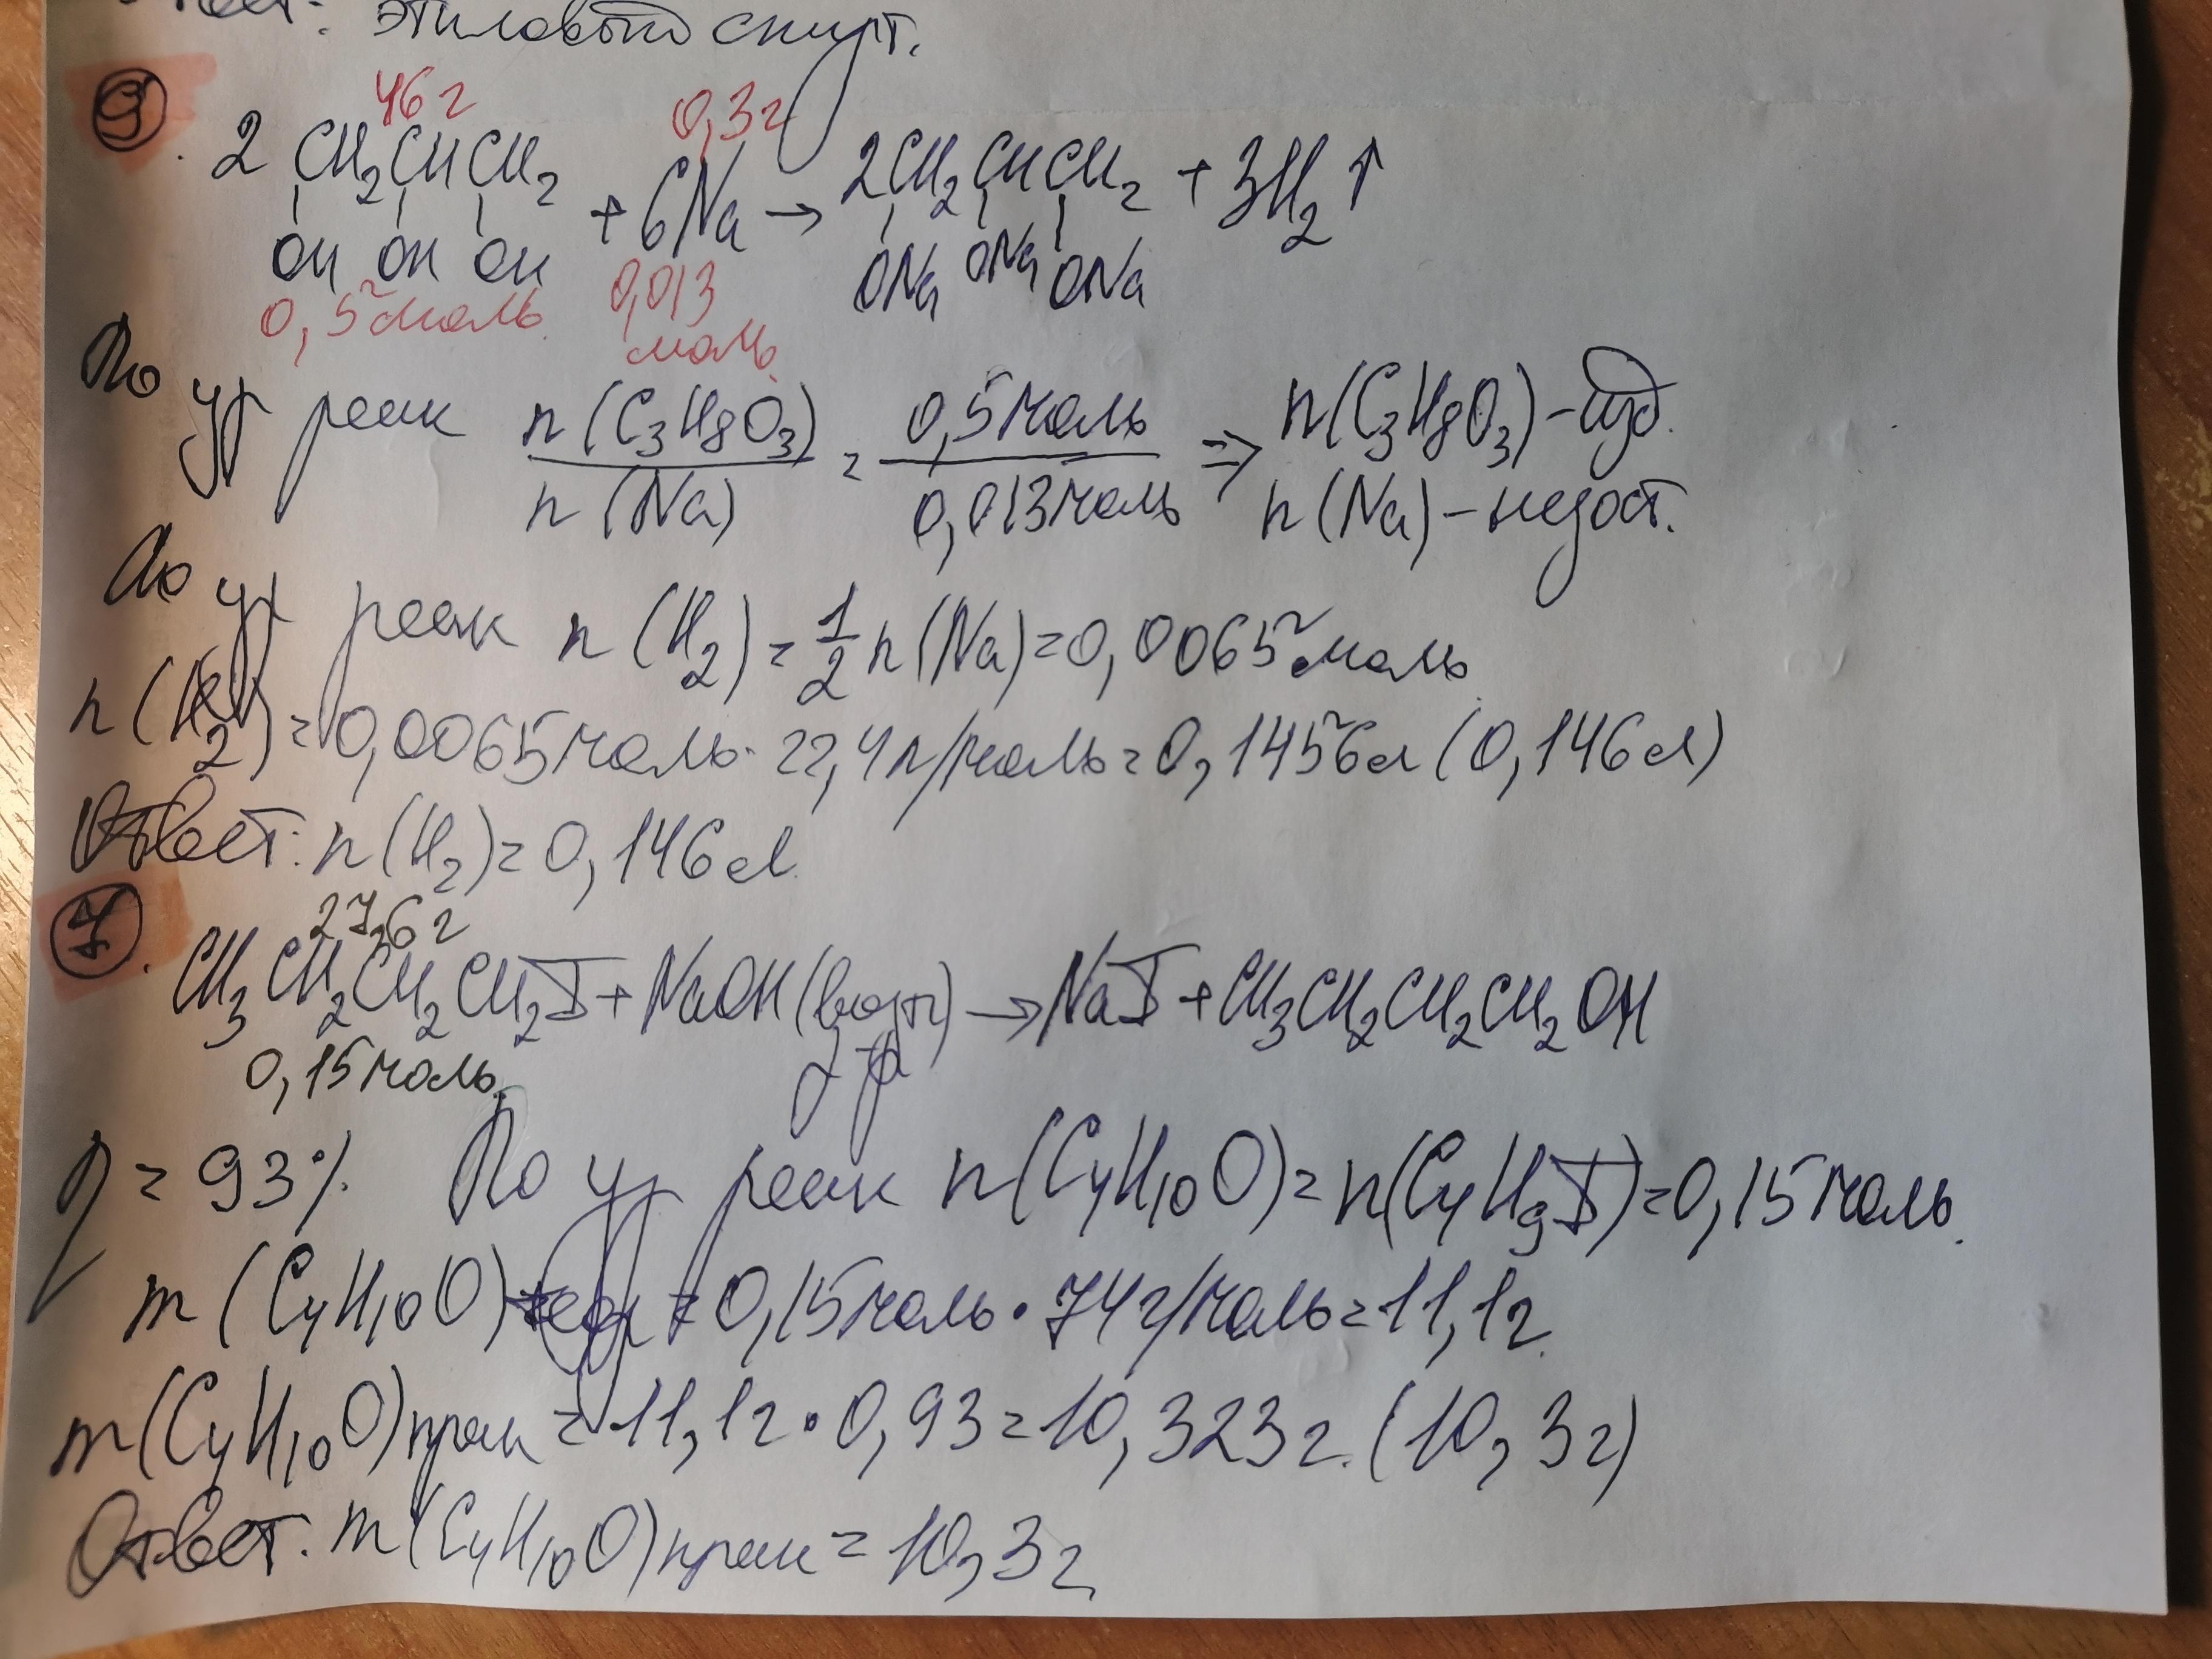 этиловый спирт.
9.
46 г 0,3 г
2 CH2CHCH2 + 6Na → 2CH2CHCH2 + 3H2↑
OH OH OH ONa ONa ONa
0,5 моль 0,013 моль
По ур реак n(C3H8O3) / n(Na) = 0,5 моль / 0,013 моль ⇒ n(C3H8O3) – изб.
n(Na) – недост.
По ур реак n(H2) = 1/2 n(Na) = 0,0065 моль
n(H2) = 0,0065 моль · 22,4 л/моль = 0,1456 л (0,146 л)
Ответ: n(H2) = 0,146 л
7.
27,6 г
CH3CH2CH2CH2I + NaOH (водн) → NaI + CH3CH2CH2CH2OH
р-р
0,15 моль
η = 93% По ур реак n(C4H10O) = n(C4H9I) = 0,15 моль.
m(C4H10O) = 0,15 моль · 74 г/моль = 11,1 г
m(C4H10O) прак = 11,1 г · 0,93 = 10,323 г. (10,3 г)
Ответ: m(C4H10O) прак = 10,3 г